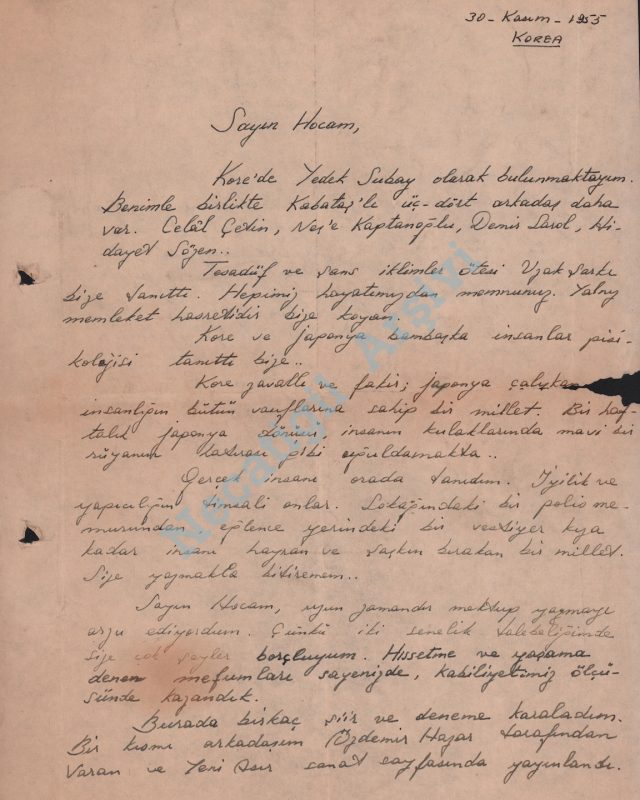 30 - Kasım - 1955
KOREA
Sayın Hocam,
Kore'de Yedek Subay olarak bulunmaktayım.
Benimle birlikte Kabataş'lı üç-dört arkadaş daha
var. Celâl Çetin, Neş'e Kaptanoğlu, Demir Sarol, Hi-
dayet Sözen..
Tesadüf ve şans iklimler ötesi Uzak Şarkı
bize tanıttı. Hepimiz hayatımızdan memnunuz. Yalnız
memleket hasretidir bize koyan.
Kore ve japonya bambaşka insanlar pisi-
kolojisi tanıttı bize..
Kore zavallı ve fakir; japonya çalışkan
insanlığın bütün vasıflarına sahip bir millet. Bir haf-
talık japonya dönüşü, insanın kulaklarında mavi bir
rüyanın hatırası gibi uğuldamakta..
Gerçek insanı orada tanıdım. İyilik ve
yapıcılığın timsali onlar. Sokağındaki bir polis me-
murundan eğlence yerindeki bir vestiyer kıza
kadar insanı hayran ve şaşkın bırakan bir millet.
Size yazmakla bitiremem..
Sayın Hocam, uzun zamandır mektup yazmayı
arzu ediyordum. Çünkü iki senelik talebeliğimde
size çok şeyler borçluyum. Hissetme ve yaşama
denen mefumları sayenizde, kabiliyetimiz ölçü-
sünde kazandık.
Burada birkaç şiir ve deneme karaladım.
Bir kısmı arkadaşım Özdemir Hazar tarafından
Varan ve Yeni Asır sanat sayfasında yayınlandı.
Necatigil Arşivi